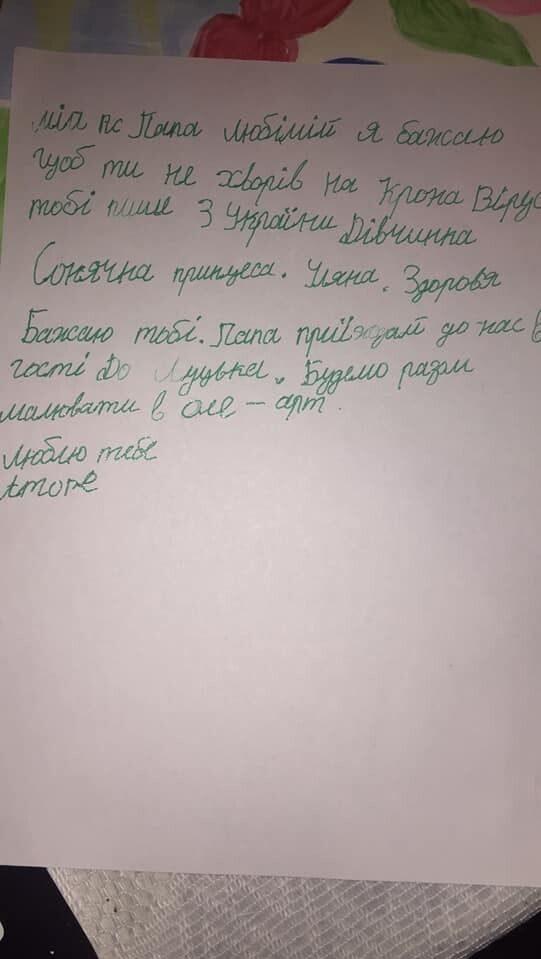 мій пс Папа любімій я бажаю
щоб ти не хворів на Крона Вірус
тобі пише З України Дівчинна
Сонячна принцеса. Уляна. Здоровя
Бажаю тобі. Папа приїзджай до нас в
гості До Луцька. Будемо разом
малювати в оле - арт.
люблю тебе
Amore